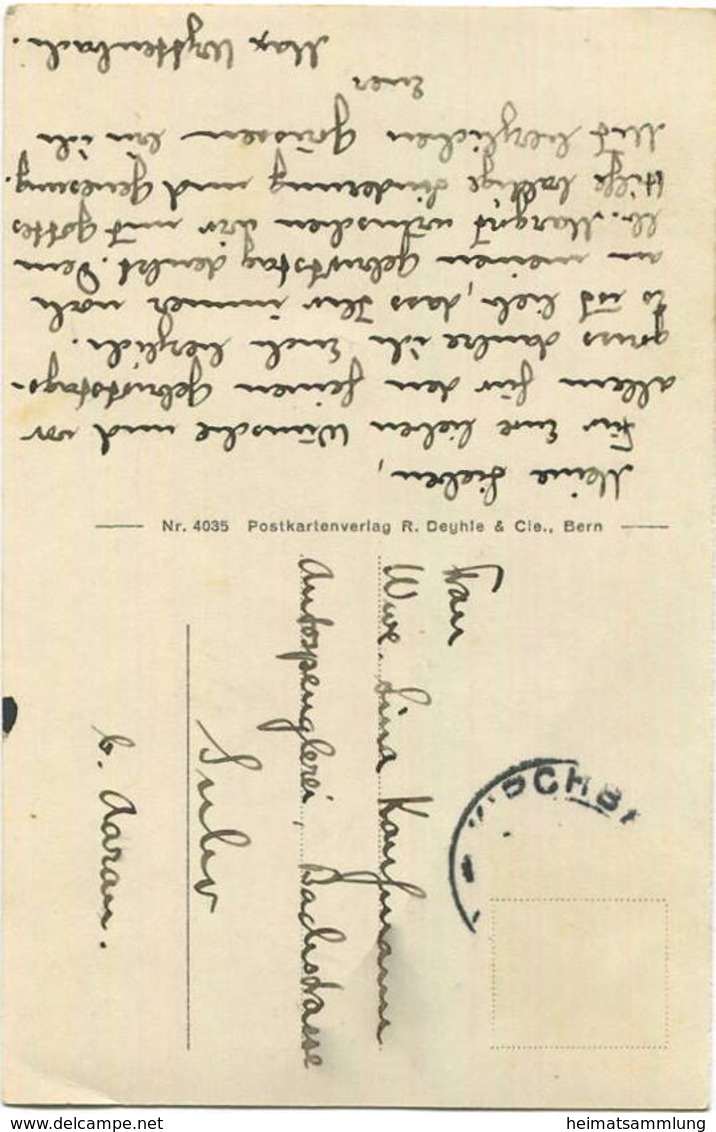 Meine Lieben,
Für Eure lieben Wünsche und vor
allem für den feinen Geburtstags-
gruss danke ich Euch herzlich.
Es ist lieb, dass Ihr immer noch
an meinen Geburtstag denkt. Dem
lb. Margrit wünschen wir mit Gottes
Hilfe baldige Linderung und Genesung.
Mit herzlichen Grüssen bin ich
Euer
Max Wyttenbach.
Nr. 4035 Postkartenverlag R. Deyhle & Cie., Bern
Frau
Wwe. Lina Kaufmann
Autospenglerei, Bachstrasse
Suhr
b. Aarau.
heimatsammlung